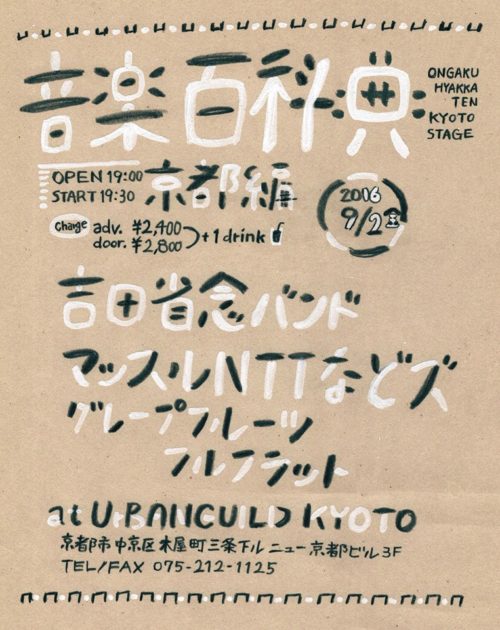 音楽百科典
ONGAKU
HYAKKA
TEN
KYOTO
STAGE
OPEN 19:00
START 19:30
京都編
2016
9/2金
Charge adv. ¥2,400
door. ¥2,800
+1 drink
吉田省念バンド
マッスルNTTなどズ
グレープフルーツ
フルフラット
at URBANGUILD KYOTO
京都市中京区木屋町三条下ル ニュー京都ビル3F
TEL/FAX 075-212-1125